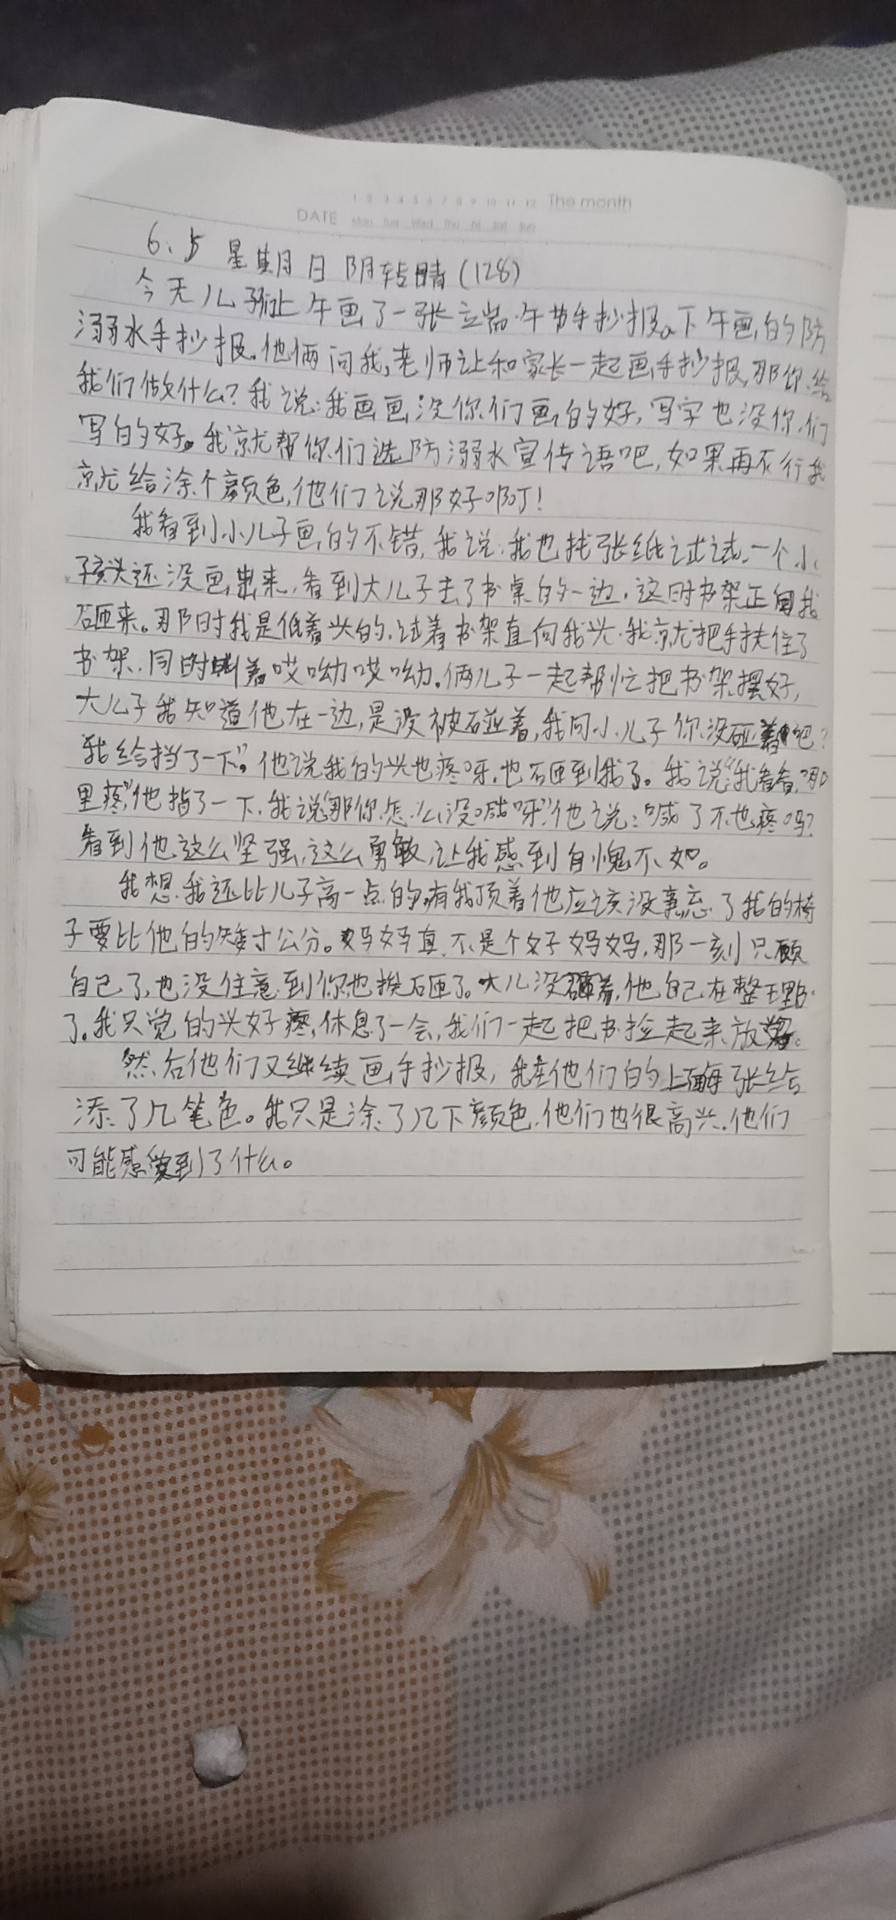 1 2 3 4 5 6 7 8 9 10 11 12 The month
DATE Mon Tue Wed Thu Fri Sat Sun
6、5 星期日 阴转晴(128)
今天儿子们上午画了一张端午节手抄报。下午画的防
溺水手抄报。他俩问我,老师让和家长一起画手抄报,那你给
我们做什么?我说:我画画没你们画的好,写字也没你们
写的好。我就帮你们选防溺水宣传语吧,如果再不行我
就给涂个颜色,他们说那好啊!
我看到小儿子画的不错,我说:我也找张纸试试,一个小
孩头还没画出来,看到大儿子去了书桌的一边,这时书架正向我
砸来。那时我是低着头的,试着书架直向我头,我就把手扶住了
书架,同时叫着哎呦哎呦。俩儿子一起帮忙把书架摆好,
大儿子我知道他在一边,是没被碰着,我问小儿子你没砸着吧?
我给挡了一下”。他说我的头也疼呀,也砸到我了。我说“我看看,哪
里疼”他指了一下,我说“那你怎么没喊呀”他说:喊了不也疼吗?
看到他这么坚强,这么勇敢,让我感到自愧不如。
我想,我还比儿子高一点的,有我顶着他应该没事,忘了我的椅
子要比他的矮寸公分。妈妈真不是个好妈妈,那一刻只顾
自己了,也没住意到你也挨砸了。大儿没砸着,他自己在整理
了。我只觉的头好疼,休息了一会,我们一起把书捡起来放好。
然后他们又继续画手抄报,我在他们的上面每张给
添了几笔色。我只是涂了几下颜色,他们也很高兴,他们
可能感受到了什么。